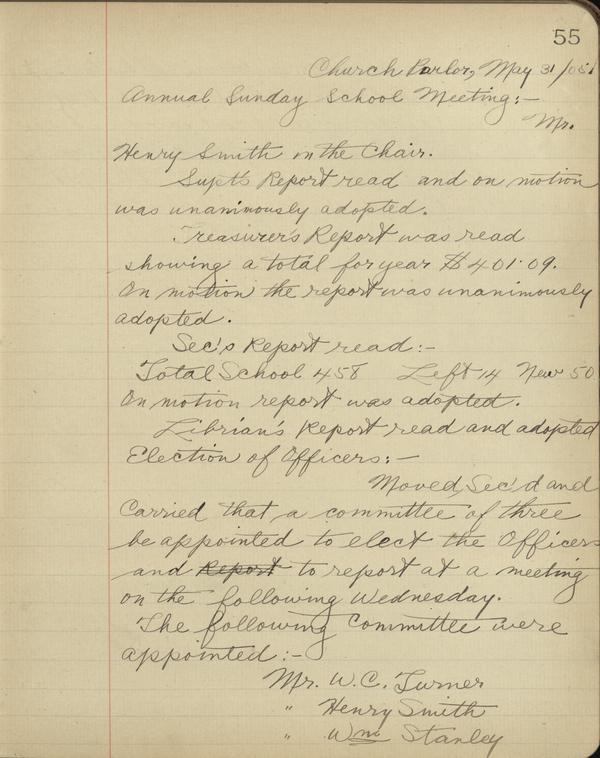 55
Church Parlor, May 31/05.
Annual Sunday School Meeting:-
Mr.
Henry Smith in the Chair.
Supt's Report read and on motion
was unanimously adopted.
Treasurer's Report was read
showing a total for year $401.09.
On motion the report was unanimously
adopted.
Sec's Report read:-
Total School 458 Left 14 New 50
On motion report was adopted.
Librian's Report read and adopted
Election of Officers:-
Moved, Sec'd and
Carried that a committee of three
be appointed to elect the Officers
and Report to report at a meeting
on the following Wednesday.
The following Committee were
appointed:-
Mr. W.C. Turner
" Henry Smith
" Wm Stanley